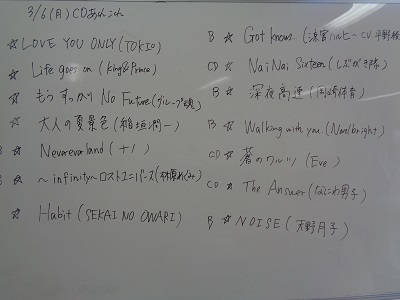 3/6(月)CDあれこれ
☆LOVE YOU ONLY(TOKIO)
☆ Life goes on (King&Prince)
☆ もうすっかり No Future(グループ魂)
☆ 大人の夏景色(稲垣潤一)
B ☆ Neverever land (ナノ)
B ☆ ~infinity~ロストユニバース(林原めぐみ)
☆ Habit (SEKAI NO OWARI)
B ☆ God knows... (涼宮ハルヒ CV.平野綾
CD ☆ NaiNai Sixteen (しぶがき隊)
B ☆ 深夜高速(岡崎体育)
B ☆ Walking with you (Novelbright)
CD ☆ 蒼のワルツ(Eve)
CD ☆ The Answer(なにわ男子)
B ☆ NOISE(天野月子)